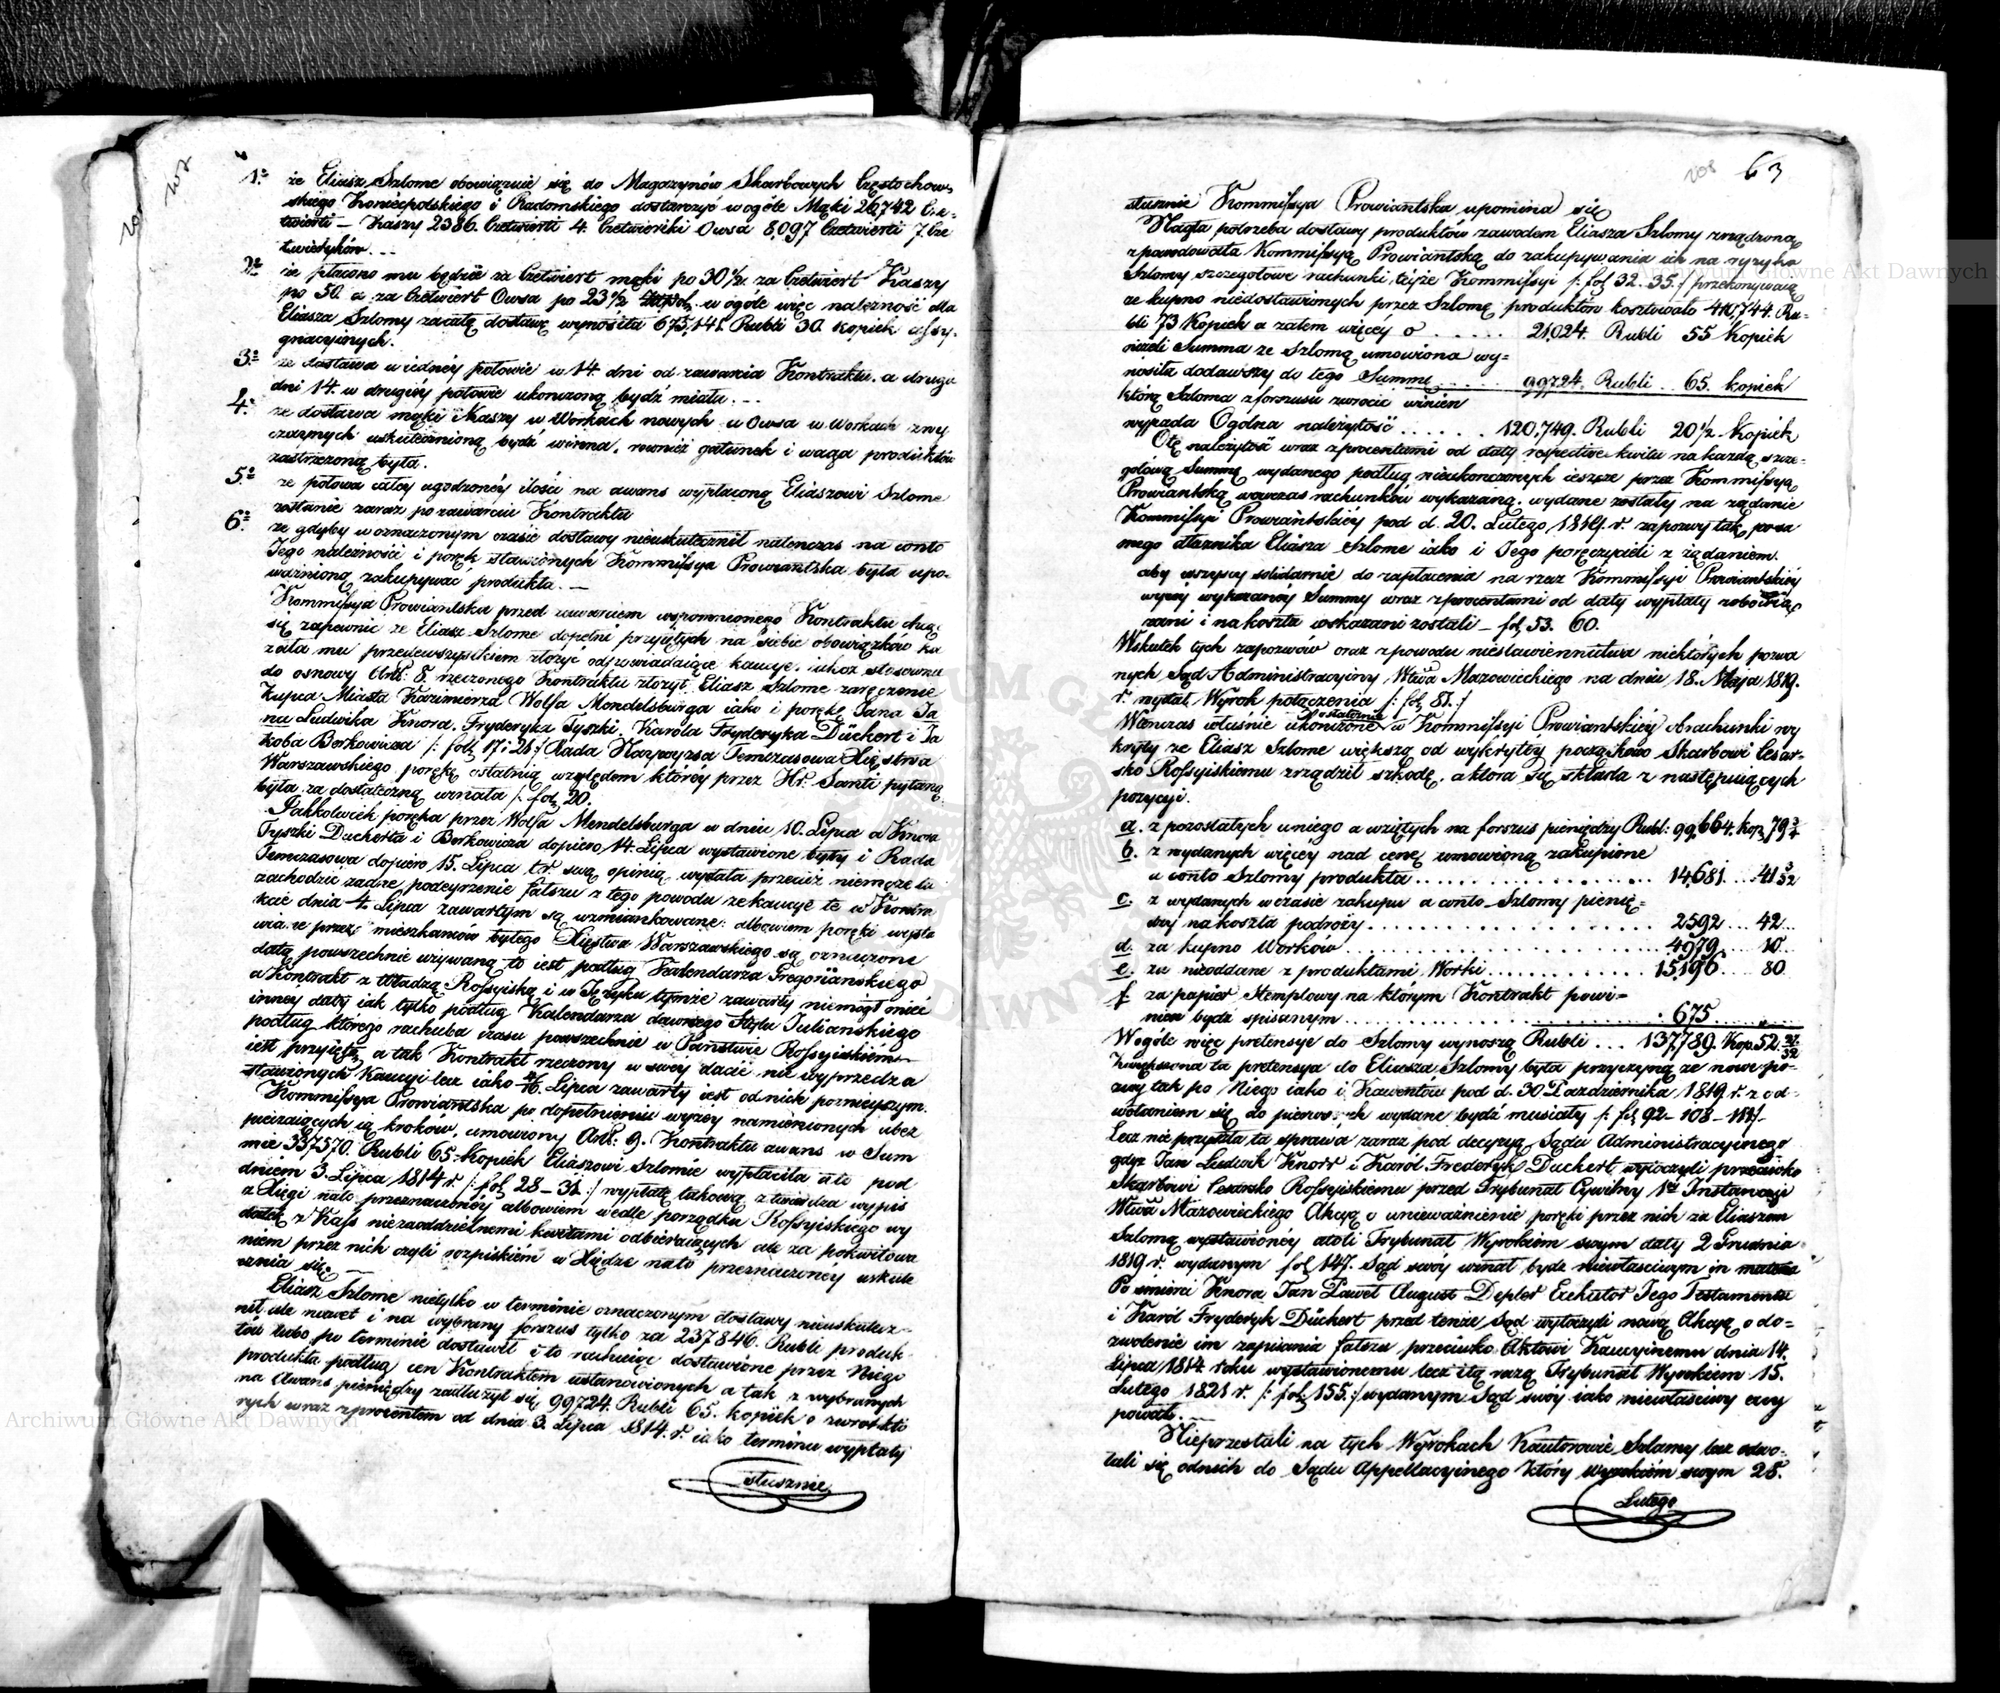 1º że Eliasz Szlome obowiązuie się do Magazynów Skarbowych Częstochow-
skiego Koniecpolskiego i Radomskiego dostarczyć wogóle Mąki 26,742 Cze-
twierti – Kaszy 2386. Czetwierti 4. Czetwieriki Owsa 8,097 Czetwierti 7. Cze
twieryków. –
2º że płacono mu będzie za Czetwiert mąki po 30 1/2 za Czetwiert Kaszy
po 50. a za Czetwiert Owsa po 23 1/2 w ogóle więc należność dla
Eliasza Szlomy za całą dostawę wynosiła 675,141. Rubli 30. kopiek assy-
gnacyinych.
3º że dostawa w iednéy połowie w 14. dni od zawarcia Kontraktu. a druga
dni 14. w drugiéy połowie ukończoną bydź miała. –
4º że dostawa mąki i Kaszy w Workach nowych a Owsa w Workach zwy
czaynych uskutecznioną bydź winna, również gatunek i waga produktów
zastrzeżoną była.
5º że połowa całéy ugodzonéy ilości na awans wypłaconą Eliaszowi Szlome
zostanie zaraz po zawarciu Kontraktu
6º że gdyby w oznaczonym czasie dostawy nieuskutecznił natenczas na conto
Jego należności i poręk stawionych Kommissya Prowiantska była upo-
ważnioną zakupywać produkta. –
Kommissya Prowiantska przed zawarciem wspomnionego Kontraktu chcąc
się zapewnić że Eliasz Szlome dopełni przyiętych na siebie obowiązków ka
zała mu przedewszystkiem złożyć odpowiadaiące kaucye, iakoż stosownie
do osnowy Art: 8. rzeczonego Kontraktu złożył Eliasz Szlome zaręczenie
Kupca Miasta Kazimierza Wolfa Mendelsburga iako i porękę Jana Ja
na Ludwika Knora. Fryderyka Tyszki, Karola Fryderyka Düchert i Ja
koba Berkowicza /: fol. 17 i 21 :/ Rada Naywyższa Temczasowa Xięstwa
Warszawskiego porękę ostatnią względem któréy przez Hr. Santi pytaną
była za dostateczną uznała /: fol. 20.
Jakkolwiek poręka przez Wolfa Mendelsburga w dniu 10. Lipca a Knora
Tyszki Ducherta i Berkowicza dopiero 14. Lipca wystawione były i Rada
Temczasowa dopiero 15. Lipca t.r. swą opinią wydała przecież niemoże tu
zachodzić żadne podeyrzenie fałszu z tego powodu że kaucye te w Kontra
kcie dnia 4. Lipca zawartym są wzmiankowane: albowiem poręki wysta
wiane przez mieszkańców byłego Xięstwa Warszawskiego są oznaczone
datą powszechnie używaną to iest podług Kalendarza Gregoriańskiego
a Kontrakt z Władzą Rossyiską i w Języku tymże zawarty niemógł mieć
inney daty iak tylko podług Kalendarza dawnego Stylu Juliańskiego
podług którego rachuba czasu powszechnie w Państwie Rossyiskiém
iest przyiętą, a tak Kontrakt rzeczony w swéy dacie nie wyprzedza
stawionych Kaucyi lecz iako 4/16. Lipca zawarty iest od nich poznieyszym.
Kommissya Prowiantska po dopełnieniu wyżey namienionych ubez
pieczaiących ią kroków, umowiony Art: 9. Kontraktu awans w Sum
mie 337570. Rubli 65 Kopiek Eliaszowi Szlomie wypłaciła a to pod
dniem 3. Lipca 1814 r. /: fol. 28 – 31. :/ wypłatę takową ztwierdza wypis
z Xięgi na to przeznaczonéy albowiem wedle porządku Rossyiskiego wy
datek z Kass niezaoddzielnemi kwitami odbieraiących ale za pokwitowa
niem przez nich czyli rozpiskiém w Xiędze na to przeznaczonéy uskute
cznia się. –
Eliasz Szlome nietylko w terminie oznaczonym dostawy nieuskutecz-
nił ale nawet i na wybrany forszus tylko za 237846. Rubli produk-
tów lubo po terminie dostawił i to rachuiąc dostawione przez Niego
produkta podług cen Kontraktem ustanowionych a tak z wybranych
na Awans pieniędzy zadłużył się 99724. Rubli 65. kopiek o zwrot któ
rych wraz z procentem od dnia 3. Lipca 1814. r. iako terminu wypłaty
słusznie
63
słusznie Kommissya Prowiantska upomina się
Nagła potrzeba dostawy produktów zawodem Eliasza Szlomy zrządzona
zpowodowała Kommissyą Prowiantską do zakupywania ich na ryzyko
Szlomy szczegółowe rachunki téyże Kommissyi /: fol 32. 35. :/ przekonywaią
że kupno niedostawionych przez Szlomę produktów kosztowało 410,744. Ru-
bli 73 Kopiek a zatem więcéy o ..... 21,024. Rubli 55 Kopiek
niżeli Summa ze Szlomą umowiona wy=
nosiła dodawszy do tego Summę ..... 99724. Rubli .. 65. kopiek
którą Szloma z forszusu zwrocić winien
wypada Ogólna należytość ...... 120,749. Rubli 20 1/2 Kopiek
Otę należytość wraz z procentami od daty respective kwitu na każdą szcze-
gółową Summę wydanego podług nieukończonych ieszcze przez Kommissyą
Prowiantską wówczas rachunków wykazaną, wydane zostały na żądanie
Kommissyi Prowiantskiéy pod d. 20. Lutego 1819. r. zapozwy tak po sa
mego dłużnika Eliasza Szlome iako i Jego poręczycieli z żądaniem.
aby wszyscy solidarnie do zapłacenia na rzecz Kommissyi Prowiantskiéy
wyżéy wykazanéy Summy wraz z procentami od daty wypłaty zobowią
zani i na koszta wskazani zostali – fol. 53. 60.
Wskutek tych zapozwów oraz z powodu niestawiennictwa niektórych pozwa
nych Sąd Administracyiny Wtwa Mazowieckiego na dniu 18. Maja 1819.
r. wydał Wyrok połączenia /: fol. 81. :/
Wówczas właśnie ukończone ostatecznie w Kommissyi Prowiantskiéy Rachunki wy
kryły że Eliasz Szlome większą od wykrytey początkowo Skarbowi Cesar-
sko Rossyiskiemu zrządził szkodę, a która się składa z następuiących
pozycyi.
a. z pozostałych u niego a wziętych na forszus pieniędzy Rubl: 99,664. kop. 79 3/4
b. z wydanych więcéy nad cenę umowioną zakupione
a conto Szlomy produkta .......... 14,681. ... 41 3/32
c. z wydanych w czasie zakupu a conto Szlomy pienię=
dzy na koszta podróży .......... 2592 ... 42 ..
d. za kupno Worków .......... 4979 ... 10 ..
e. za nieoddane z produktami Worki .......... 15,196 ... 80
f. za papiér stemplowy na którym Kontrakt powi=
nien bydź spisanym .......... 675 ...
Wogóle więc pretensye do Szlomy wynoszą Rubli ... 137,789. Kop. 52. 27/32
Zwiększona ta pretensya do Eliasza Szlomy była przyczyną że nowe po-
zwy tak po Niego iako i Kawentów pod d. 30 Października 1819 r. z od-
wołaniem się do pierwszych wydane bydź musiały /: fol. 92 – 108 – 117/.
Lecz nie przyszła ta sprawa zaraz pod decyzyą Sądu Administracyinego
gdyż Jan Ludwik Knorr i Karól Frederyk Duchert wytoczyli przeciwko
Skarbowi Cesarsko Rossyiskiemu przed Trybunał Cywilny 1éy Instancyi
Wtwa Mazowieckiego Akcyą o unieważnienie poręki przez nich za Eliaszem
Szlomą wystawionéy atoli Trybunał Wyrokiem swym daty 2 Grudnia
1819 r. wydanym fol. 147. Sąd swóy uznał bydź niewłaściwym in materia
Po śmierci Knora Jan Paweł August Depler Exekutor Jego Testamentu
i Karól Fryderyk Düchert przed tenże Sąd wytoczyli nową Akcyą o do-
zwolenie im zapisania fałszu przeciwko Aktowi Kaucyinemu dnia 14.
Lipca 1814. roku wystawionemu lecz i tą razą Trybunał Wyrokiem 15.
Lutego 1821 r. /: fol. 155. :/ wydanym Sąd swóy iako niewłaściwy czy
powali. –
Nieprzestali na tych Wyrokach Kautorowie Szlamy lecz odwo-
łali się odnich do Sądu Appellacyinego który wyrokiém swym 28.
Lutego
Archiwum Główne Akt Dawnych
Archiwum Główne Akt Dawnych